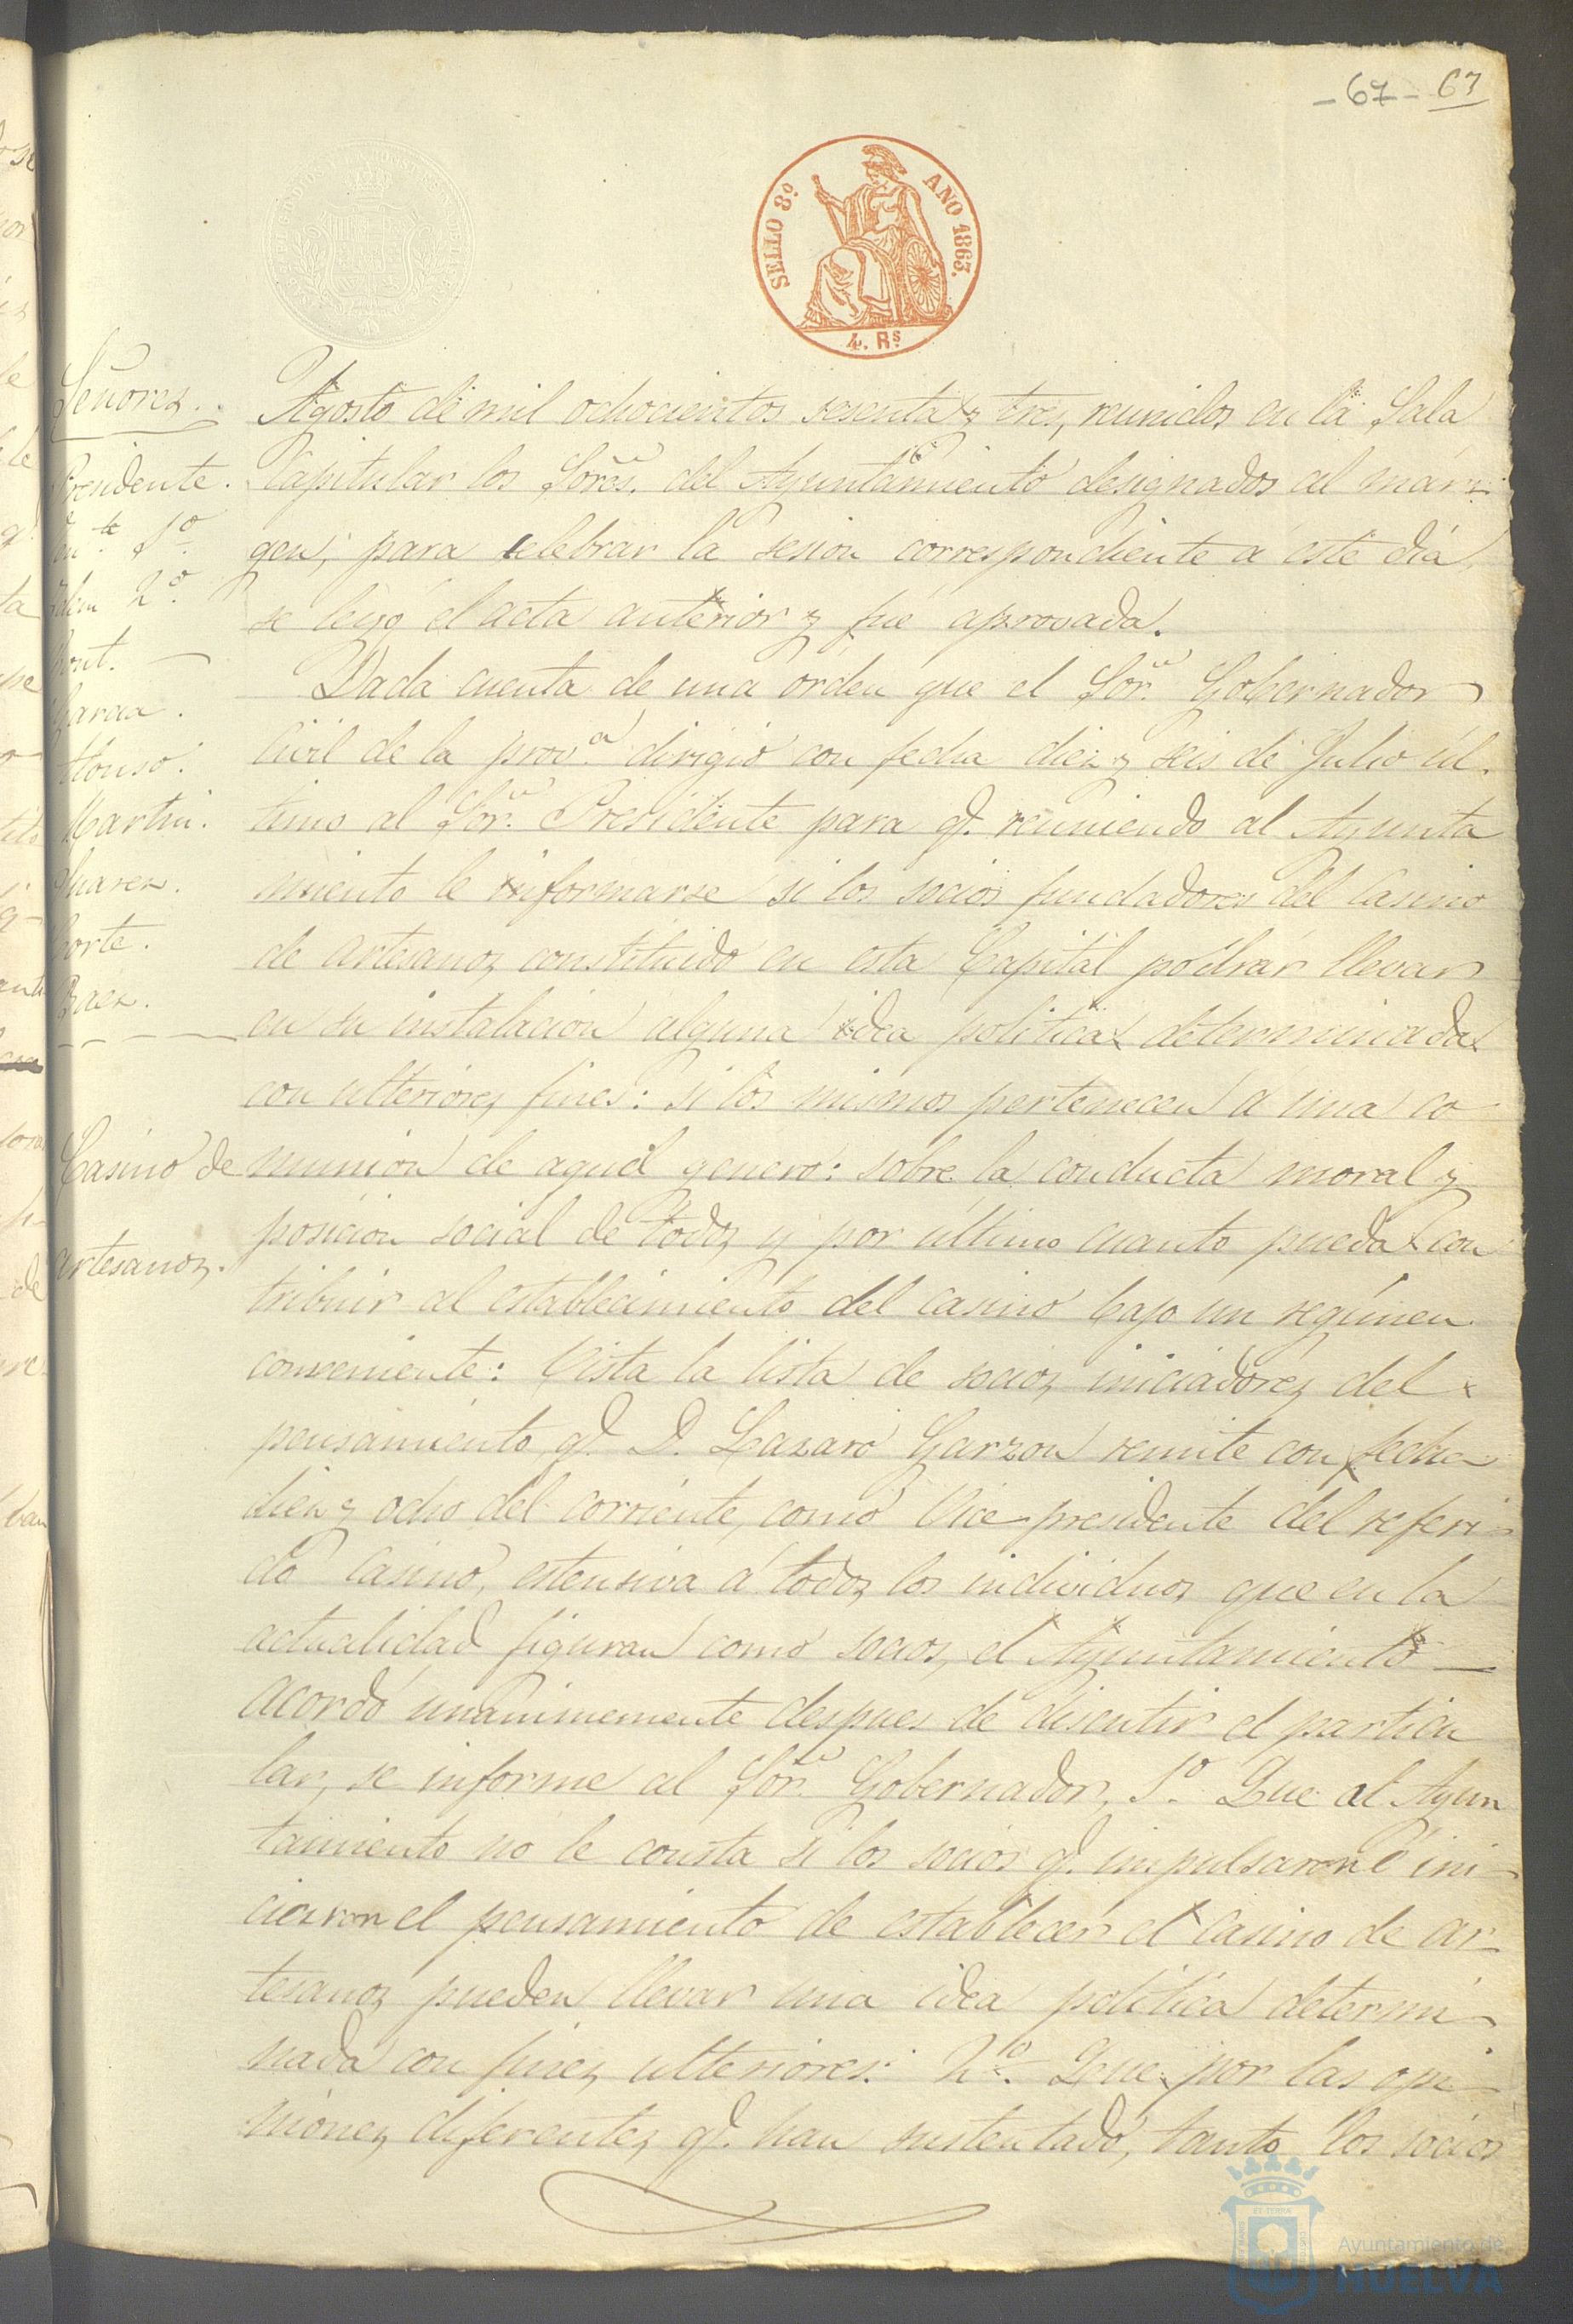 - 67 - 67
SELLO 8º AÑO 1863.
4. Rs
Señores.
Presidente.
Tente 1º
Idem 2º
Mont.
Garcia.
Alonso.
Martin.
Suarez.
Corte.
Baez.
Casino de
artesanos.
Agosto de mil ochocientos sesenta y tres, reunidos en la Sala
Capitular los Sores. del Ayuntamiento designados al már-
gen, para celebrar la sesion correspondiente á este dia,
se leyo el acta anterior y fué aprovada.
Dada cuenta de una órden que el Sor. Gobernador
Civil de la prova. dirigió con fecha diez y seis de Julio úl-
timo al Sor. Presidente para q. reuniendo al Ayunta
miento le informarse si los socios fundadores del Casino
de artesanos constituido en esta Capital podrár llevar
en su instalacion alguna idea politica determinada
con ulteriores fines: si los mismos pertenecen á una co
munion de aquél genero: sobre la conducta moral y
posicion social de todos y por último cuanto pueda con
tribuir al establecimiento del casino bajo un regímen
conveniente: Vista la lista de socios iniciadores del
pensamiento q. D. Lazaro Garzon remite con fecha
diez y ocho del corriente, como Vice-presidente del referi-
do Casino, estensiva á todos los individuos que en la
actualidad figuran como socios, el Ayuntamiento
acordó unanimemente despues de discutir el particu
lar, se informe al Sor. Gobernador, 1º Que al Ayun
tamiento no le consta si los socios q. impulsaron é ini-
ciaron el pensamiento de establecer el casino de ar-
tesanos pueden llevar una idea política determi-
nada con fines ulteriores: 2º. Que por las opi-
niones diferentes q. han sustentado, tanto los socios
Ayuntamiento de
HUELVA